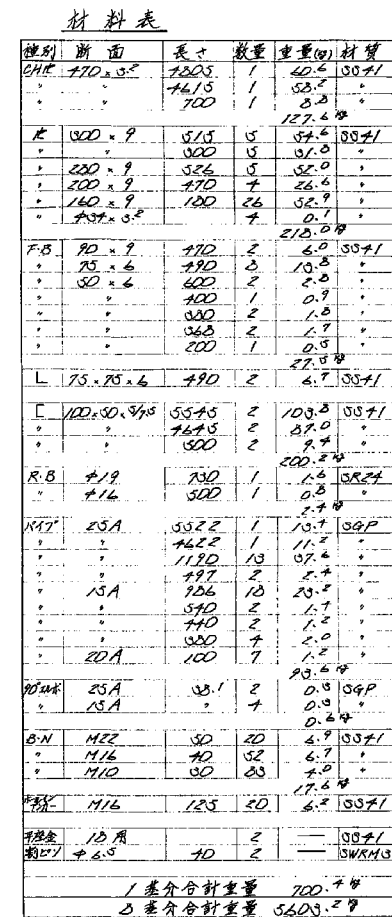 材料表
種別 断面 長さ 数量 重量(kg) 材質
CHPL 470×3.2 4805 1 60.6 SS41
〃 〃 4615 1 58.2 〃
〃 〃 700 1 8.8 〃
127.6 kg
PL 300×9 515 5 54.6 SS41
〃 〃 300 5 31.8 〃
〃 280×9 526 5 52.0 〃
〃 200×9 470 4 26.6 〃
〃 160×9 180 26 52.9 〃
〃 434×3.2 4 0.1 〃
218.0 kg
F・B 90×9 470 2 6.0 SS41
〃 75×6 490 8 13.8 〃
〃 50×6 600 2 2.8 〃
〃 〃 400 1 0.9 〃
〃 〃 380 2 1.8 〃
〃 〃 368 2 1.7 〃
〃 〃 200 1 0.5 〃
27.5 kg
L 75×75×6 490 2 6.7 SS41
[ 100×50×5/7.5 5545 2 103.8 SS41
〃 〃 4645 2 87.0 〃
〃 〃 500 2 9.4 〃
200.2 kg
R・B φ19 730 1 1.6 SR24
〃 φ16 500 1 0.8 〃
2.4 kg
パイプ 25A 5522 1 13.4 SGP
〃 〃 4622 1 11.2 〃
〃 〃 1190 13 37.6 〃
〃 〃 497 2 2.4 〃
〃 15A 986 18 23.2 〃
〃 〃 540 2 1.4 〃
〃 〃 440 2 1.2 〃
〃 〃 380 4 2.0 〃
〃 20A 100 7 1.2 〃
93.6 kg
90°エルボ 25A 38.1 2 0.3 SGP
〃 15A 〃 4 0.3 〃
0.6 kg
B・N M22 50 20 6.9 SS41
〃 M16 40 52 6.7 〃
〃 M10 30 83 4.0 〃
17.6 kg
M16 125 20 6.2 SS41
18用 2 — SS41
割ピン φ6.5 40 2 — SWRM3
1基分合計重量 700.4 kg
8基分合計重量 5603.2 kg